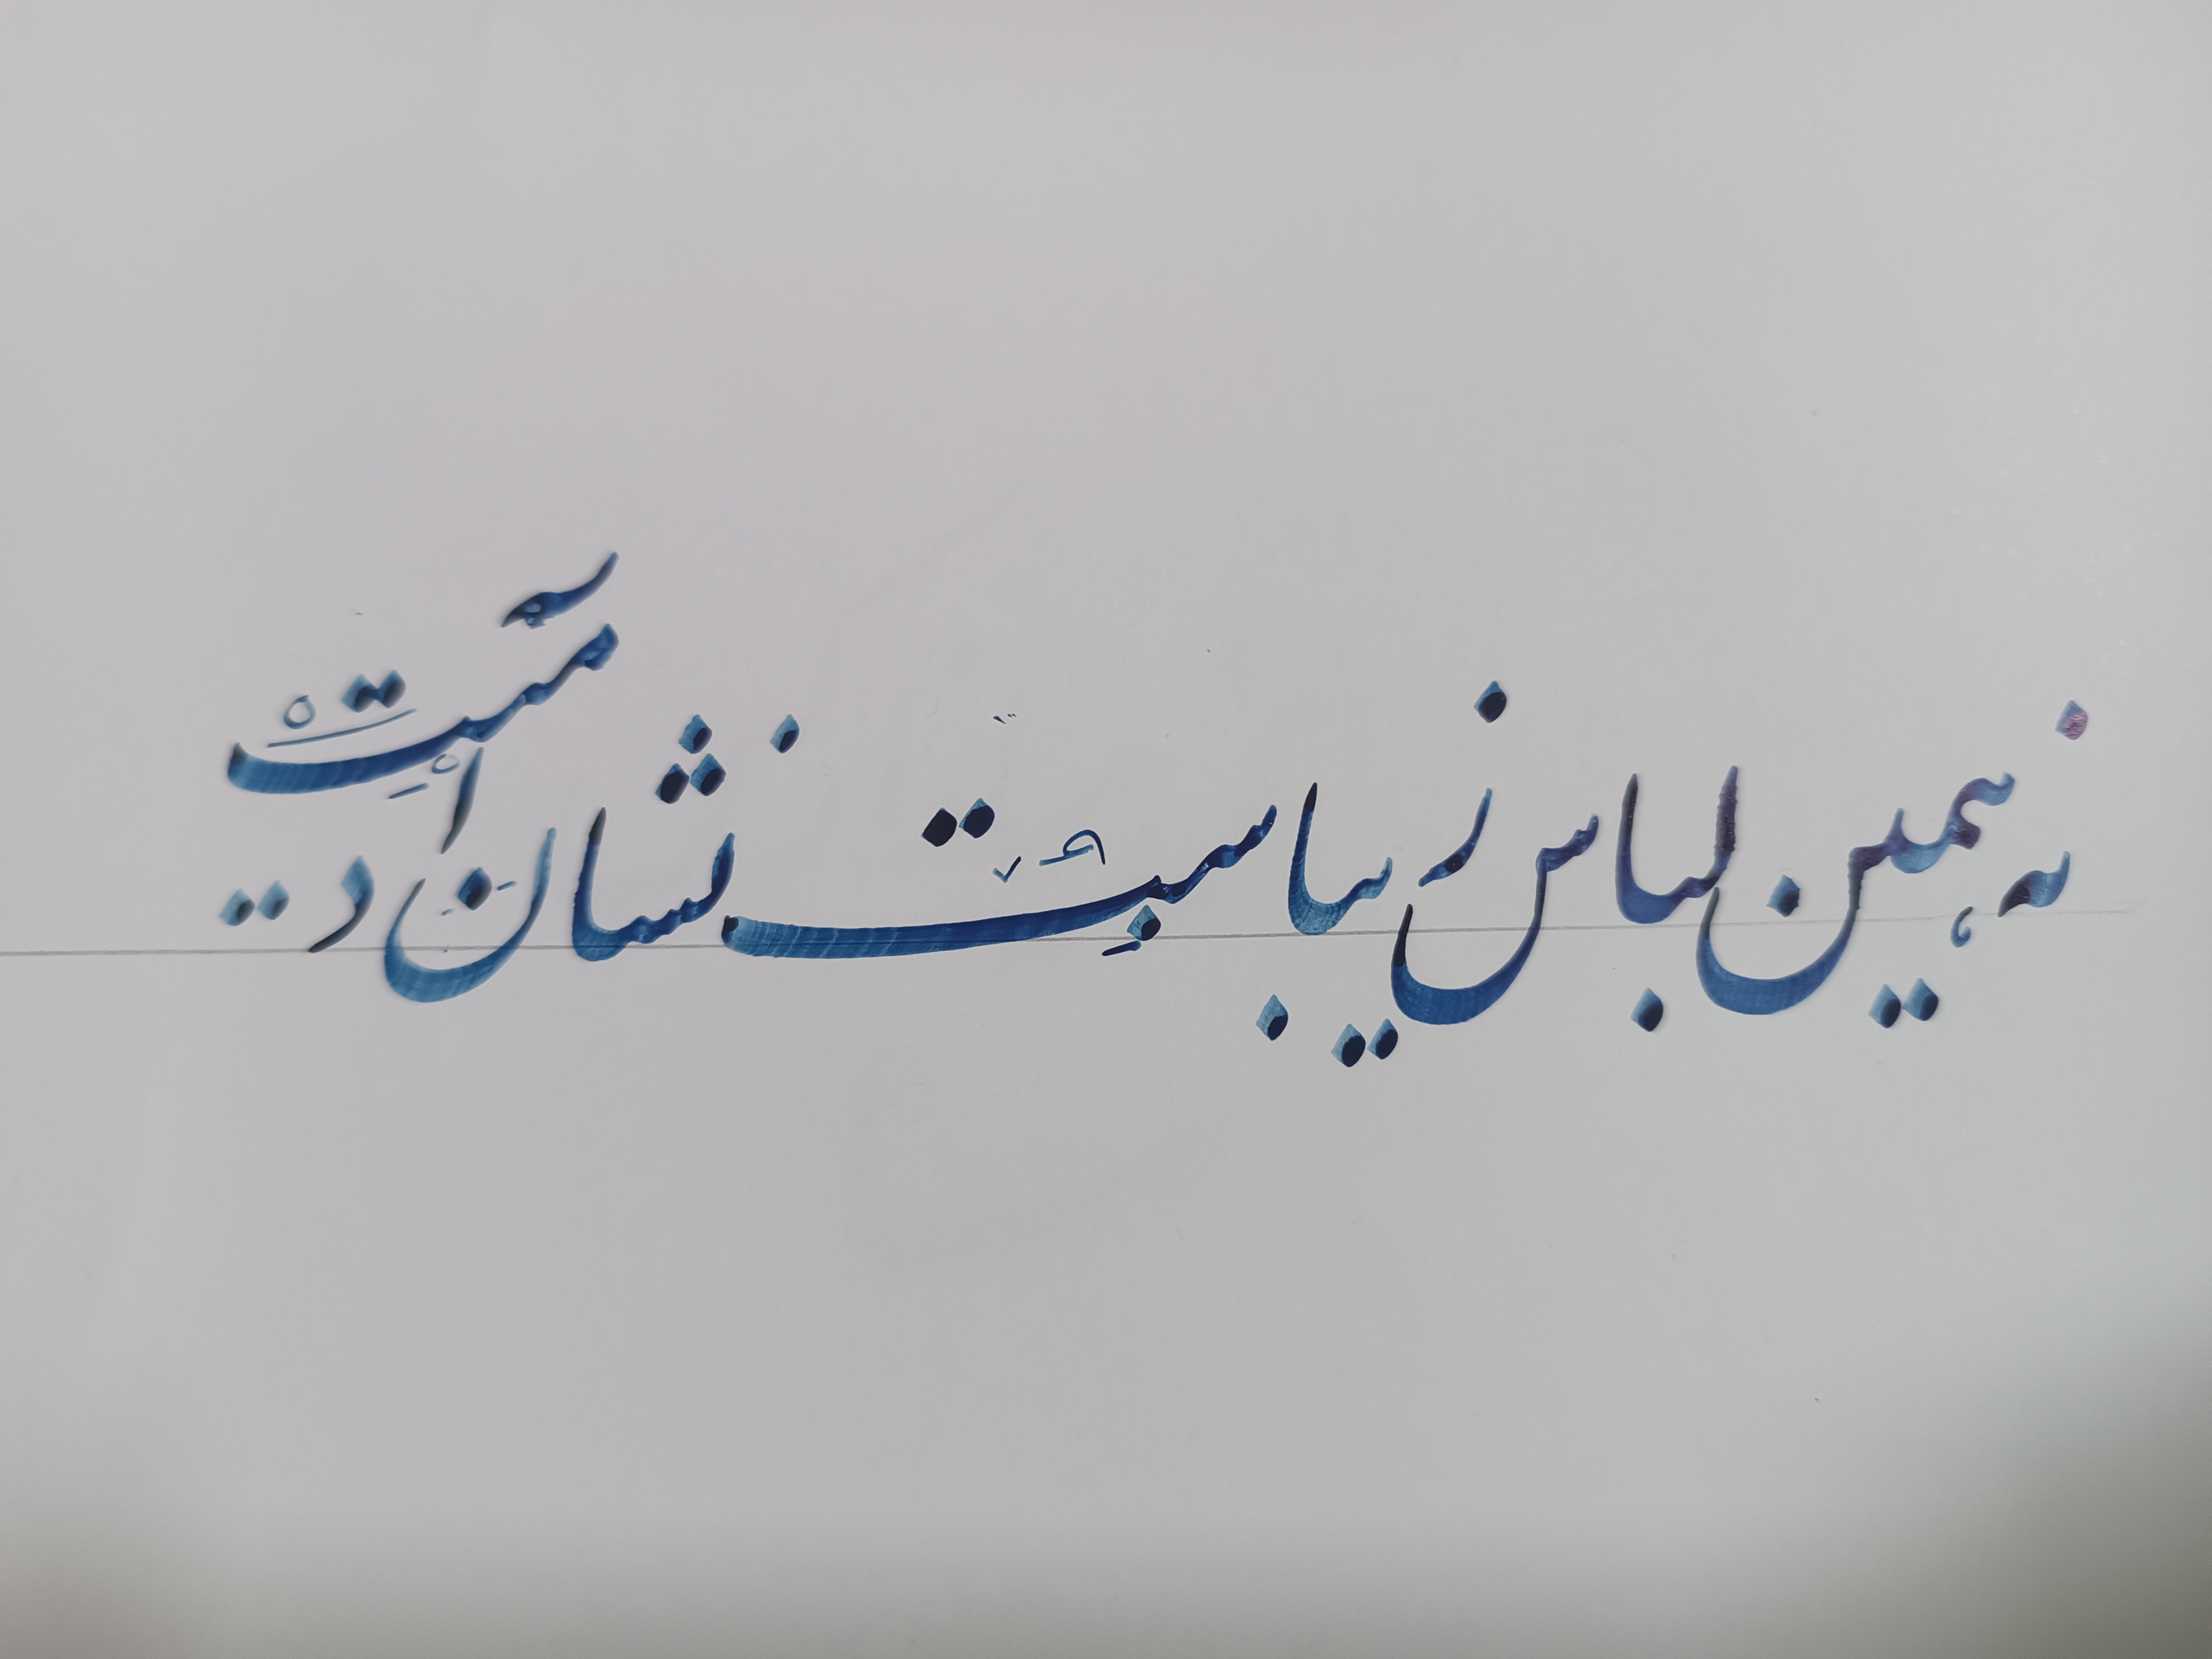 نه همین لباس زیباست نشان آدمیت